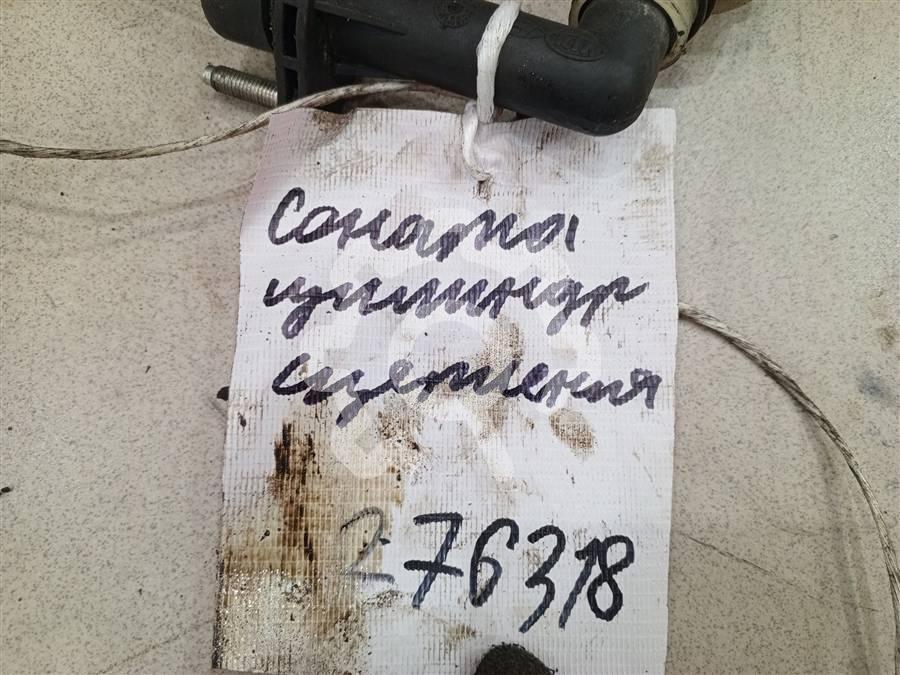 Соната
цилиндр
сцепления
276318